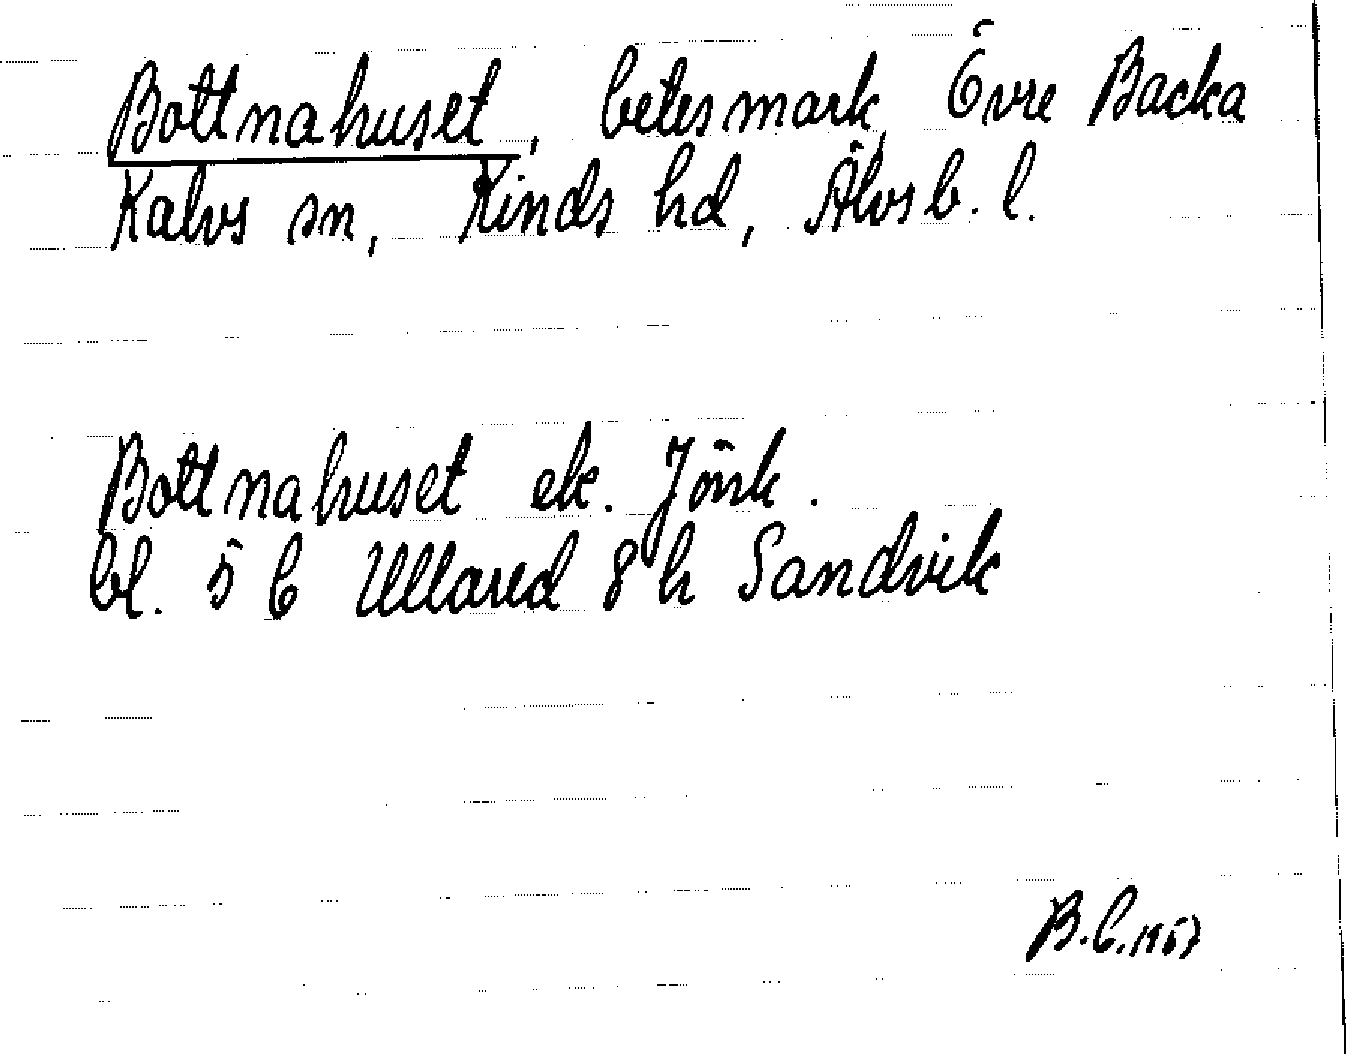 Bottnahuset, betesmark, Övre Backa
Kalvs sn, Kinds hd, Älvsb. l.
Bottnahuset ek. Jönk.
bl. 5 C Ullared 8 h Sandvik
B.C.